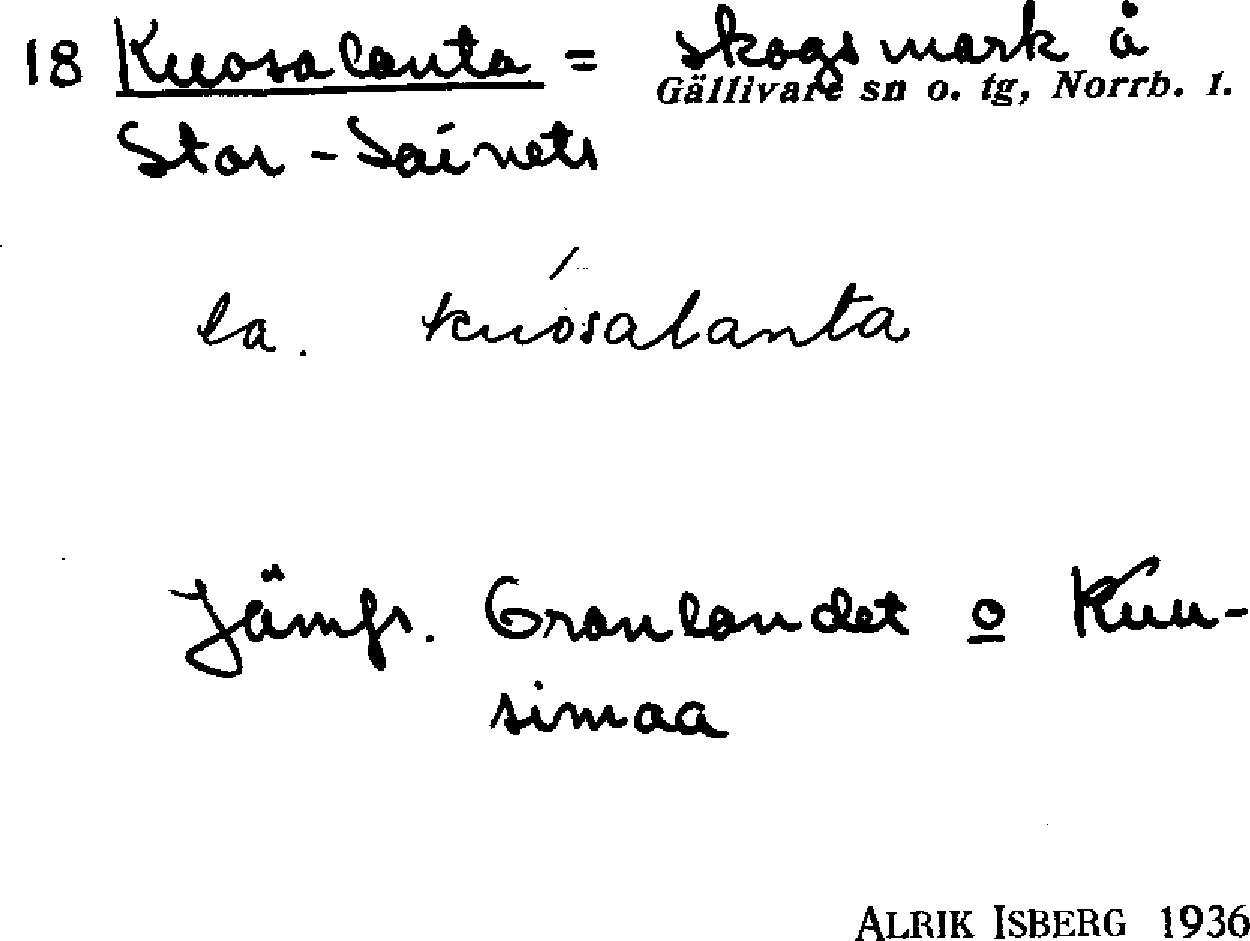 18 Kuosalanta = skogsmark å
Gällivare sn o. tg, Norrb. l.
Stor-Sainets
la. kuosalanta
Jämfr. Granlandet o Kuu-
simaa
ALRIK ISBERG 1936